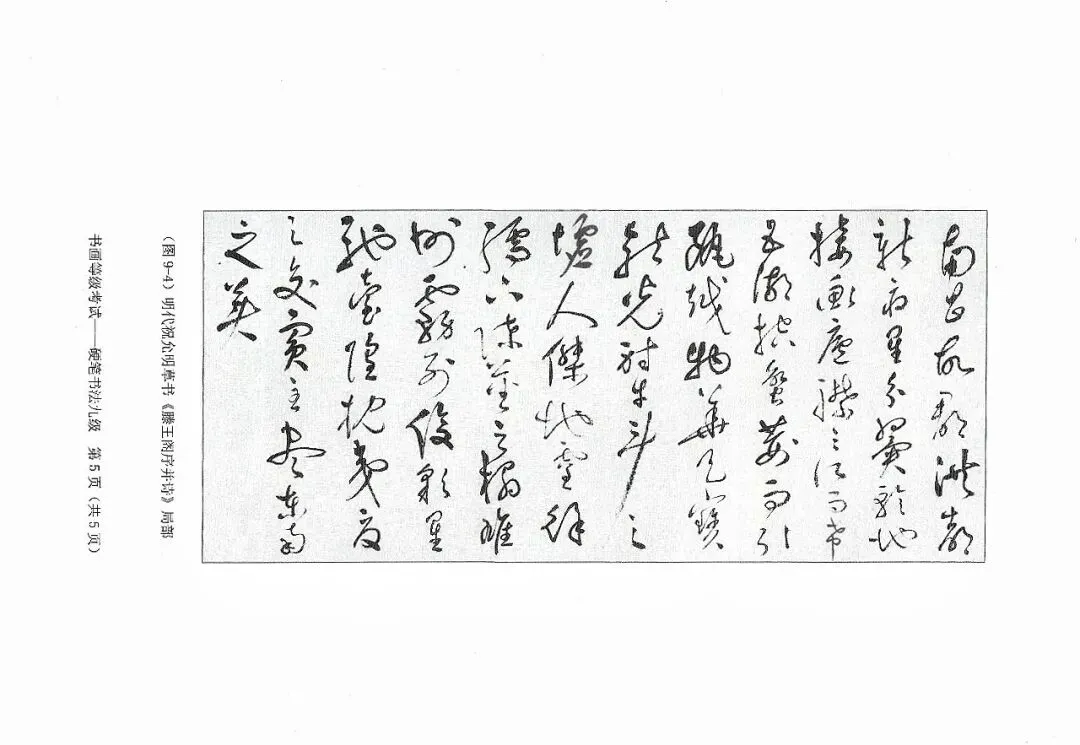 南昌故郡洪都
新府星分翼軫地
接衡廬襟三江而帶
五湖控蠻荊而引
甌越物華天寶
龍光射牛斗之
墟人傑地靈徐
孺下陳蕃之榻雄
州霧列俊彩星
馳臺隍枕夷夏
之交賓主盡東南
之美
（图9-4）明代祝允明草书《滕王阁序并诗》局部
书画等级考试——硬笔书法九级 第5页（共5页）